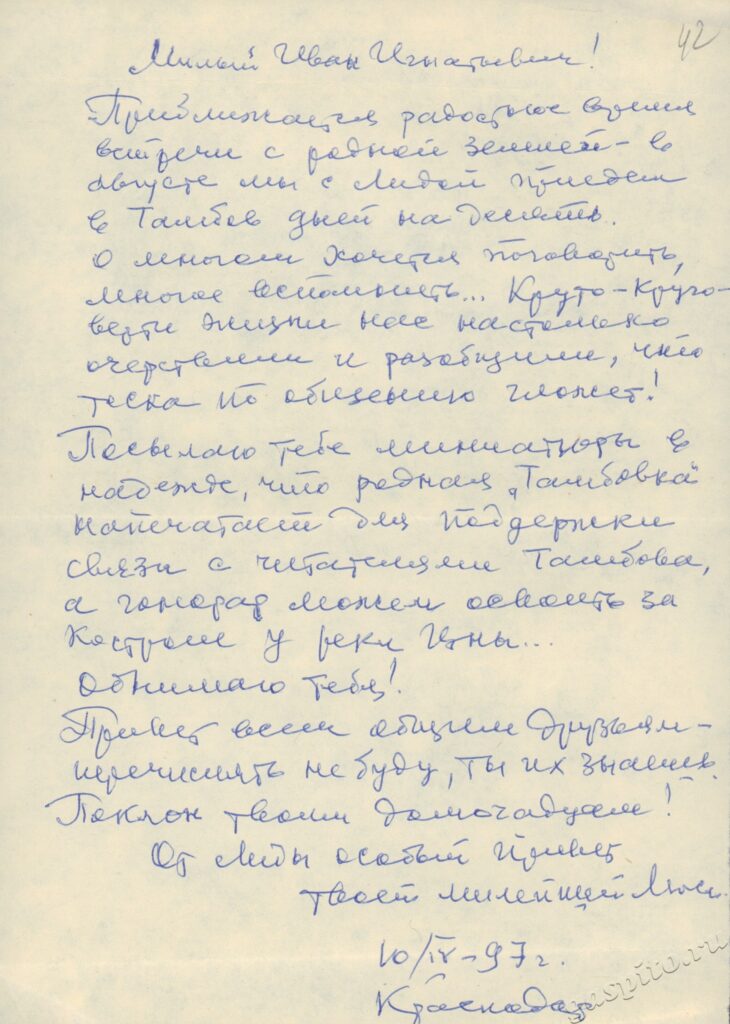 42
Милый Иван Игнатьевич!
Приближается радостное время
встречи с родной землей - в
августе мы с Лидой приедем
в Тамбов дней на десять.
О многом хочется поговорить,
многое вспомнить... Круто-круго-
верти жизни нас настолько
очерствили и разобщили, что
тоска по общению гложет!
Посылаю тебе миниатюры в
надежде, что родная „Тамбовка"
напечатает для поддержки
связи с читателями Тамбова,
а гонорар можем освоить за
костром у реки Цны...
Обнимаю тебя!
Привет всем общим друзьям -
перечислять не буду, ты их знаешь.
Поклон твоим домочадцам!
От Лиды особый привет
твоей милейшей Люси.
10/IV-97 г.
Краснодар